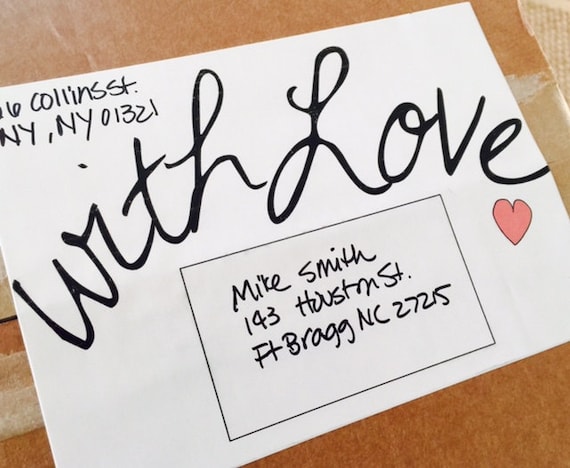 16 Collins St.
NY, NY 01321
with Love
Mike Smith
143 Houston St.
Ft Bragg NC 27215